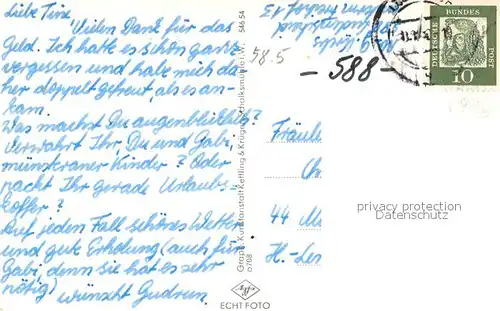 Liebe Tine
Vielen Dank für das
Geld. Ich hatte es schon ganz
vergessen und habe mich da-
her doppelt gefreut, als es an-
kam.
Was machst Du augenblicklich?
Verwahrt Ihr, Du und Gabi,
münsteraner Kinder? Oder
packt Ihr gerade Urlaubs-
koffer?
Auf jeden Fall schönes Wetter
und gute Erholung (auch für
Gabi, denn sie hat es sehr
nötig) wünscht Gudrun.
Graph. Kunstanstalt Kettling & Krüger, Schalksmühle i. W. 54654
0788
Agfa
ECHT FOTO
58.5
- 588 -
DEUTSCHE BUNDESPOST
10
Fräule
Ch
44 Mü
H.-Les
privacy protection
Datenschutz